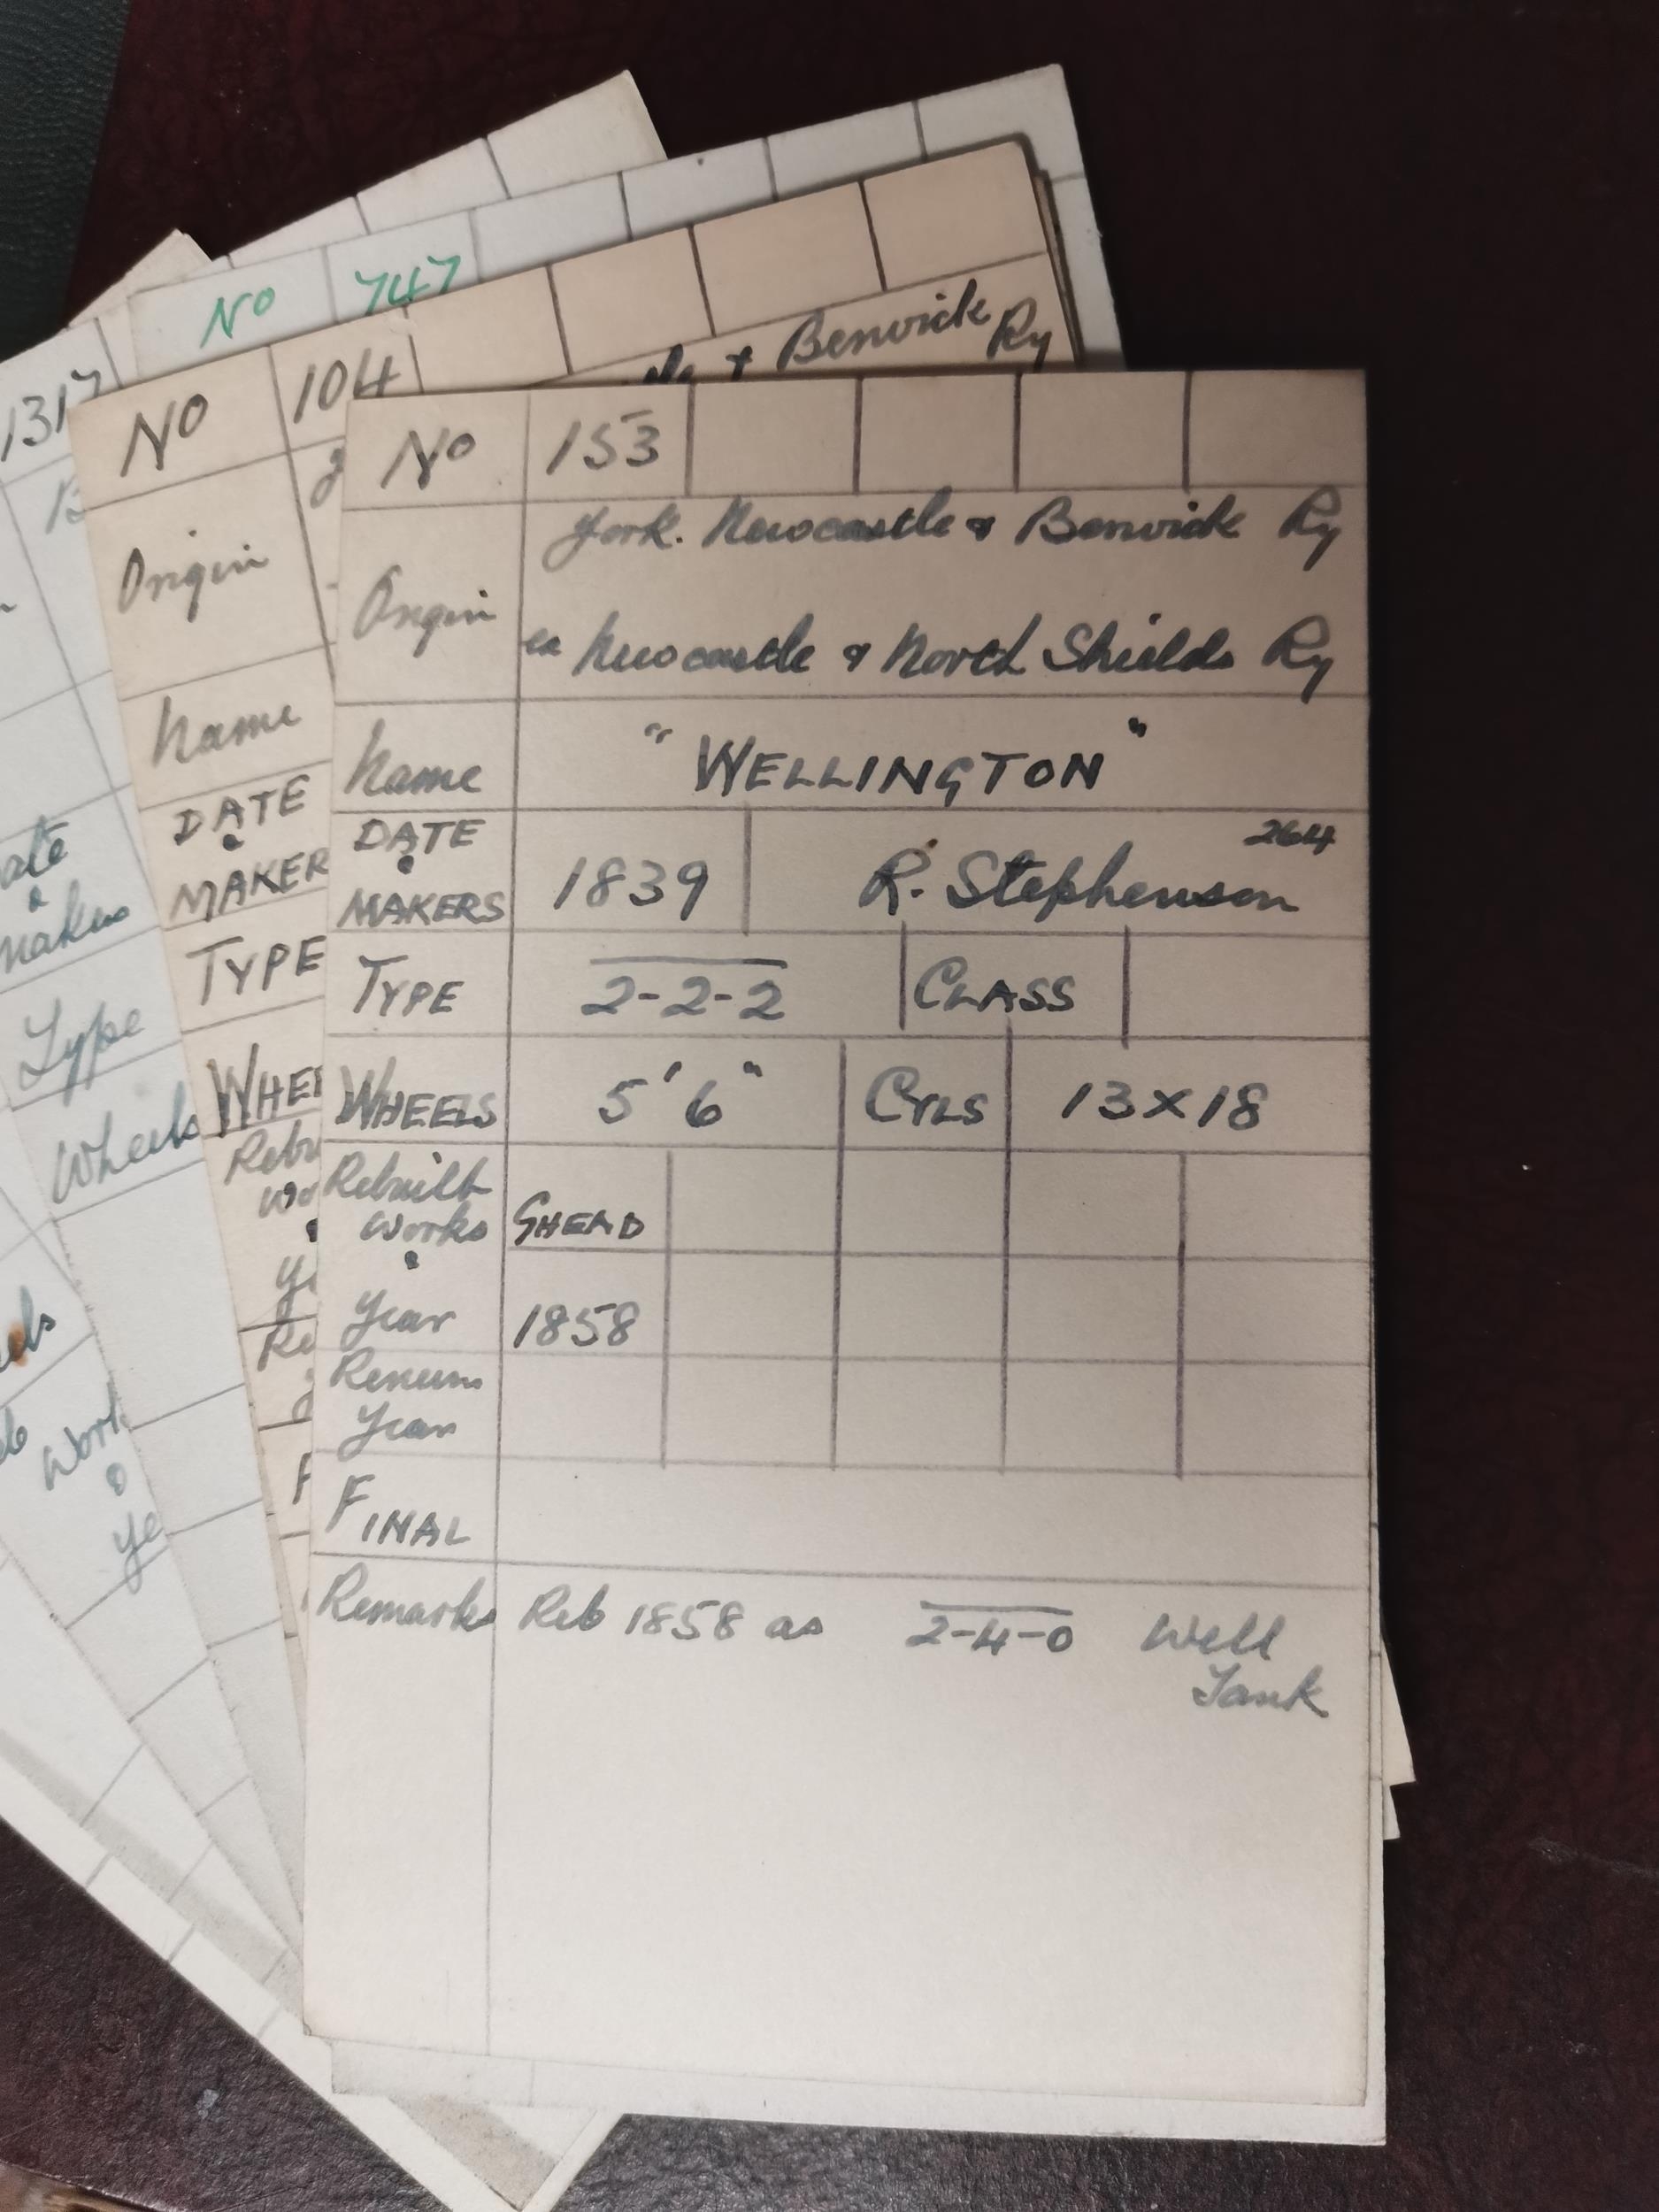 No 747
1317
No 104
& Berwick Ry
Origin
Name
DATE
&
MAKER
TYPE
Wheels
Type
No 153
York. Newcastle & Berwick Ry
Origin
ex Newcastle & North Shields Ry
Name "WELLINGTON"
DATE & MAKERS 1839 R. Stephenson 264
TYPE 2-2-2 CLASS
WHEELS 5'6" CYLS 13x18
Rebuilt
Works GHEAD
&
Year 1858
Renum
Year
FINAL
Remarks Reb 1858 as 2-4-0 Well
Tank